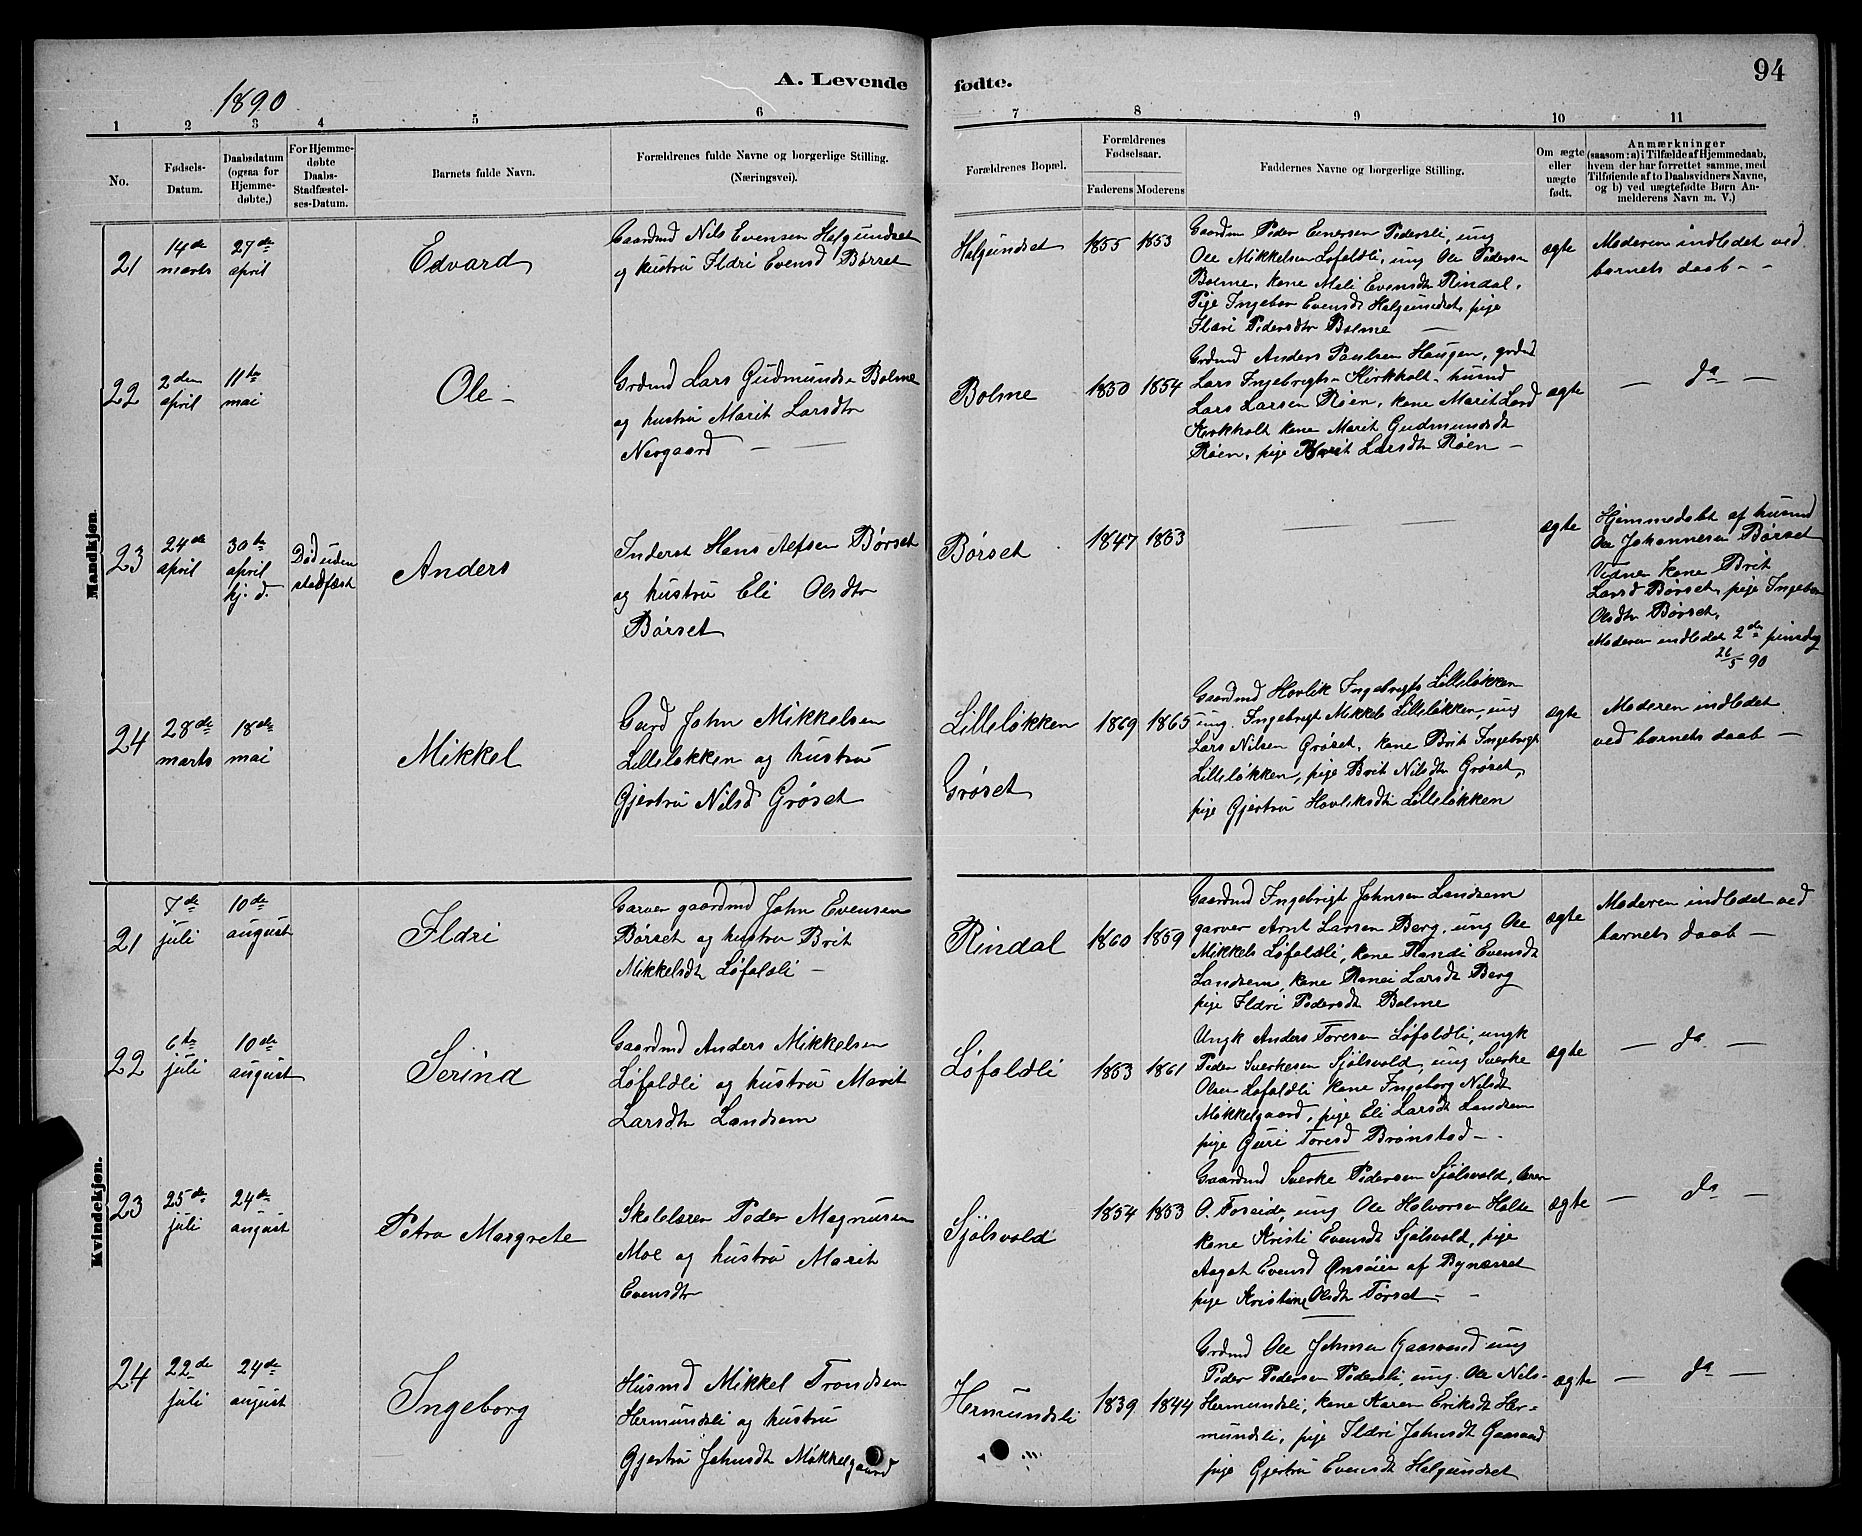 1890
A. Levende
fødte.
94
1
2
3
4
5
6
7
8
9
10
11
No.
Fødsels-
Datum.
Daabsdatum
(ogsaa for
Hjemme-
døbte.)
For Hjemme-
døbte
Daabs-
Stadfæstel-
ses-Datum.
Barnets fulde Navn.
Forældrenes fulde Navne og borgerlige Stilling.
(Næringsvei).
Forældrenes Bopæl.
Forældrenes
Fødselsaar.
Faderens
Moderens
Faddernes Navne og borgerlige Stilling.
Om ægte
eller
uægte
født.
Anmærkninger
(saasom: a) i Tilfælde af Hjemmedaab,
hvem der har forrettet samme, med
Tilføiende af to Daabsvidners Navne,
og b) ved uægtefødte Børn An-
melderens Navn m. V.)
Mandkjøn.
21
14de
marts
27de
april
Edvard
Gaardmd Nils Evensen Helgundset
og hustru Ildri Evensd Børset
Helgundset
1855
1853
Gaardm Peder Einersen Pedersli, ung
Ole Mikkelsen Løfaldli, ung Ole Pedersen
Bolme, kone Meli Evensdt Rindal,
Pige Ingebor Evensdt Helgundset, pige
Ildri Pedersdtr Bolme —
ægte
Moderen indledet ved
barnets daab - -
22
2den
april
11te
mai
Ole -
Grdmd Lars Gudmunds- Bolme
og hustru Marit Larsdtr
Nergaard —
Bolme
1850
1854
Grdmd Anders Paulsen Haugen, grdmd
Lars Ingebrigts- Kirkholt - husmd
Lars Larsen Røen, kone Marit Larsd
Kirkholt kone Marit Gudmundsdt
Røen, pige Marit Larsdtr Røen -
ægte
— da —
23
24de
april
30te
april
hj. d.
Død uden
stadfæst
Anders
Inderst Hans Alfsen Børset
og hustru Eli Olsdtr
Børset
Børset
1847
1853
— —
ægte
Hjemmedøbt af husmd
Ole Johannesen Børset
Vidner kone Brit
Larsd Børset, pige Ingebor
Olsdtr Børset,
Moderen indledet 2den pinsdag
26/5 90
24
28de
marts
18de
mai
Mikkel
Gard John Mikkelsen
Lilleløkken og hustru
Gjertru Nilsd Grøset
Lilleløkken
Grøset
1869
1865
Gaardmd Hovlik Ingebrigts Lilleløkken
ung. Ingebrigt Mikkels Lilleløkken, ung
Lars Nilsen Grøset, kone Brit Ingebrigt
Lilleløkken, pige Brit Nilsdtr Grøset,
pige Gjertru Hovliksdt Lilleløkken
ægte
Moderen indledet
ved barnets daab —
Kvindekjøn.
21
7de
juli
10de
august
Ildri
Garver gaardmd John Evensen
Børset og hustru Brit
Mikkelsdt Løfaldli -
Rindal
1860
1859
Gaardmd Ingebrigt Johnsen Landsem
garver Arnt Larsen Berg, ung Ole
Mikkels Løfaldli, kone Randi Evensdt
Landsem, kone Ranei Larsdt Berg
pige Ildri Pedersdt Bolme
ægte
Moderen indledet ved
barnets daab —
22
6te
juli
10de
august
Serind
Gaardmd Anders Mikkelsen
Løfaldli og hustru Marit
Larsdtr Landsem
Løfaldli
1853
1861
Ungk Anders Toresen Løfaldli, ungk
Peder Sverkesen Sjølsvold, ung Sverke
Olsen Løfaldli kone Ingeborg Nilsdt
Mikkelgaard, pige Eli Larsdt Landsem
pige Guri Toresd Brønstad -
ægte
— da. —
23
25de
juli
24de
august
Petra Margrete
Skolelærer Peder Magnusen
Moe og hustru Marit
Evensdtr
Sjølsvold
1854
1853
Gaardmd Sverke Pedersen Sjølsvold, lærer
O. Foseide, ung Ole Halvorsen Holte
kone Kristi Evensdt Sjølsvold, pige
Aagot Evensd Ønsøien af Bynesset
pige Kristine Olsdt Tørset -
ægte
— da —
24
22de
juli
24de
august
Ingeborg
Husmd Mikkel Trondsen
Hermundsli og hustru
Gjertru Johnsdt Mikkelgaard
Hermundsli
1839
1844
Grdmd Ole Johnsen Gaasvand ung
Peder Pedersen Pedersli, ung. Ole Nils-
Hermundsli, kone Karen Eriksdt Her-
mundsli, pige Ildri Johnsdt Gaasvand
pige Gjertru Evensdt Helgundset
ægte
— da —